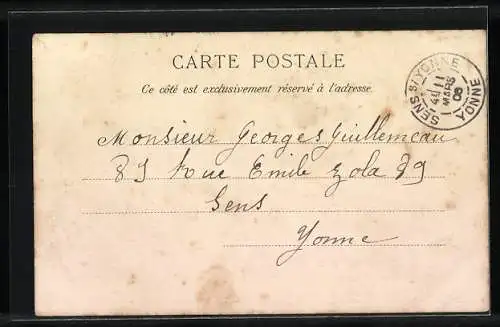 CARTE POSTALE
Ce côté est exclusivement réservé à l'adresse.
SENS S/YONNE
11
MARS
YONNE
Monsieur Georges Guillemeau
89 Rue Emile Zola 89
Sens
Yonne